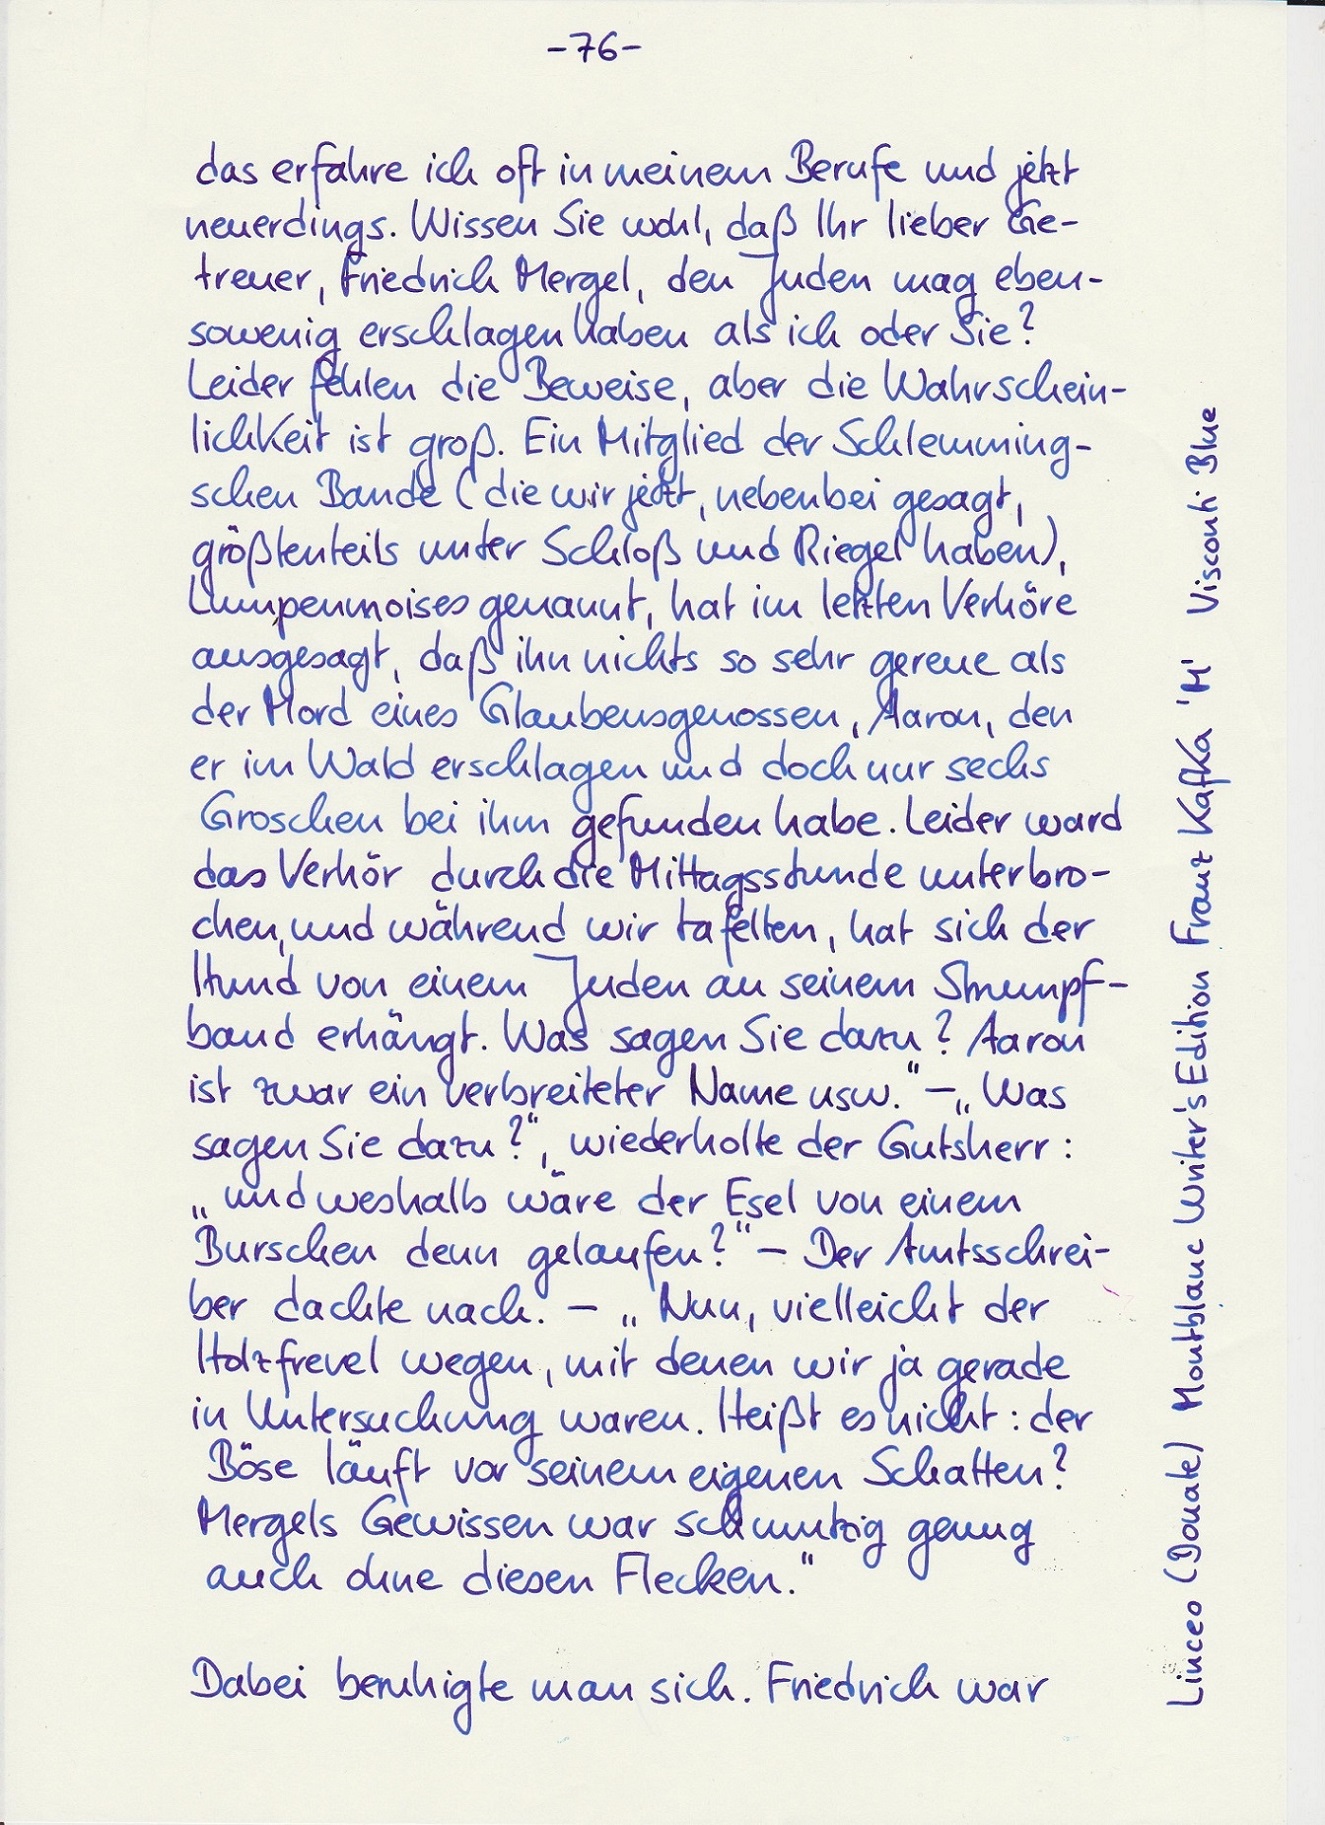 -76-
das erfahre ich oft in meinem Berufe und jetzt
neuerdings. Wissen Sie wohl, daß Ihr lieber Ge-
treuer, Friedrich Mergel, den Juden mag eben-
sowenig erschlagen haben als ich oder Sie?
Leider fehlen die Beweise, aber die Wahrschein-
lichkeit ist groß. Ein Mitglied der Schlemming-
schen Bande (die wir jetzt, nebenbei gesagt,
größtenteils unter Schloß und Riegel haben),
Lumpenmoises genannt, hat im letzten Verhöre
ausgesagt, daß ihn nichts so sehr gereue als
der Mord eines Glaubensgenossen, Aaron, den
er im Wald erschlagen und doch nur sechs
Groschen bei ihm gefunden habe. Leider ward
das Verhör durch die Mittagsstunde unterbro-
chen, und während wir tafelten, hat sich der
Hund von einem Juden an seinem Strumpf-
band erhängt. Was sagen Sie dazu? Aaron
ist zwar ein verbreiteter Name usw." – „Was
sagen Sie dazu?", wiederholte der Gutsherr:
„und weshalb wäre der Esel von einem
Burschen denn gelaufen?" – Der Amtsschrei-
ber dachte nach. – „Nun, vielleicht der
Holzfrevel wegen, mit denen wir ja gerade
in Untersuchung waren. Heißt es nicht: der
Böse läuft vor seinem eigenen Schatten?
Mergels Gewissen war schmutzig genug
auch ohne diesen Flecken."
Dabei beruhigte man sich. Friedrich war
Linceo (Donate) Montblanc Writer's Edition Franz Kafka 'M' Visconti Blue